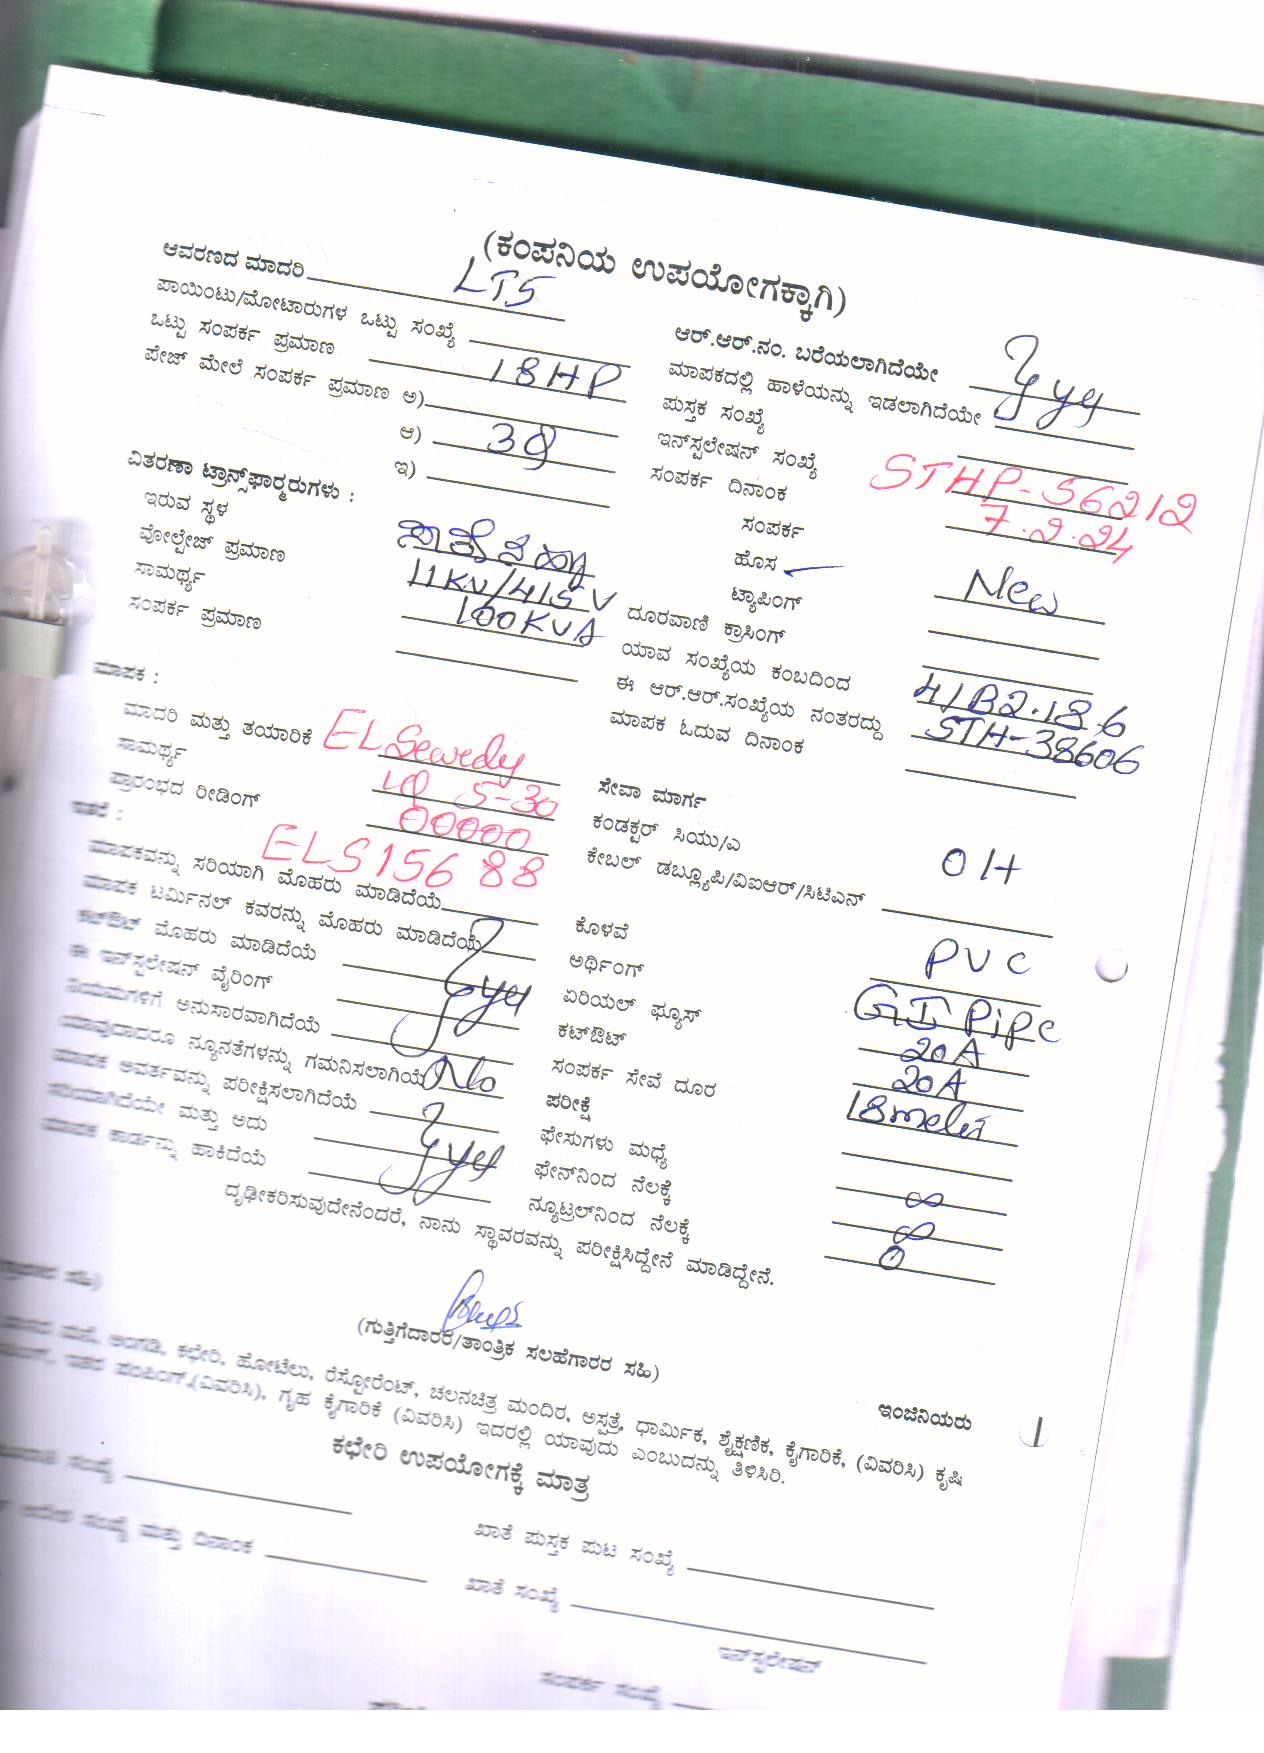 (ಕಂಪನಿಯ ಉಪಯೋಗಕ್ಕಾಗಿ)
ಆವರಣದ ಮಾದರಿ LT5
ಪಾಯಿಂಟು/ಮೋಟಾರುಗಳ ಒಟ್ಟು ಸಂಖ್ಯೆ
ಒಟ್ಟು ಸಂಪರ್ಕ ಪ್ರಮಾಣ 18HP
ಪೇಜ್ ಮೇಲೆ ಸಂಪರ್ಕ ಪ್ರಮಾಣ ಅ)
ಆ)
ಇ)
ವಿತರಣಾ ಟ್ರಾನ್ಸ್‌ಫಾರ್ಮರುಗಳು :
ಇರುವ ಸ್ಥಳ
ವೋಲ್ಟೇಜ್ ಪ್ರಮಾಣ 11KV/415V
ಸಾಮರ್ಥ್ಯ 100KVA
ಸಂಪರ್ಕ ಪ್ರಮಾಣ
ಮಾಪಕ :
ಮಾದರಿ ಮತ್ತು ತಯಾರಿಕೆ EL Sewedy
ಸಾಮರ್ಥ್ಯ 5-30
ಪ್ರಾರಂಭದ ರೀಡಿಂಗ್ 00000
ಇತರೆ : ELS15688
ಮಾಪಕವನ್ನು ಸರಿಯಾಗಿ ಮೊಹರು ಮಾಡಿದೆಯೆ
ಮಾಪಕ ಟರ್ಮಿನಲ್ ಕವರನ್ನು ಮೊಹರು ಮಾಡಿದೆಯೆ
ಕಟ್‌ಔಟ್ ಮೊಹರು ಮಾಡಿದೆಯೆ
ಈ ಇನ್‌ಸ್ಟಲೇಷನ್ ವೈರಿಂಗ್
ನಿಯಮಗಳಿಗೆ ಅನುಸಾರವಾಗಿದೆಯೆ
ಯಾವುದಾದರೂ ನ್ಯೂನತೆಗಳನ್ನು ಗಮನಿಸಲಾಗಿಯೆ No
ಮಾಪಕ ಆವರ್ತವನ್ನು ಪರೀಕ್ಷಿಸಲಾಗಿದೆಯೆ
ಸರಿಯಾಗಿದೆಯೇ ಮತ್ತು ಅದು
ಮಾಪಕ ಕಾರ್ಡನ್ನು ಹಾಕಿದೆಯೆ
ಆರ್.ಆರ್.ನಂ. ಬರೆಯಲಾಗಿದೆಯೇ
ಮಾಪಕದಲ್ಲಿ ಹಾಳೆಯನ್ನು ಇಡಲಾಗಿದೆಯೇ
ಪುಸ್ತಕ ಸಂಖ್ಯೆ
ಇನ್‌ಸ್ಟಲೇಷನ್ ಸಂಖ್ಯೆ STHP-56212
ಸಂಪರ್ಕ ದಿನಾಂಕ 7.2.24
ಸಂಪರ್ಕ
ಹೊಸ New
ಟ್ಯಾಪಿಂಗ್
ದೂರವಾಣಿ ಕ್ರಾಸಿಂಗ್
ಯಾವ ಸಂಖ್ಯೆಯ ಕಂಬದಿಂದ 4/B2.18.6
ಈ ಆರ್.ಆರ್.ಸಂಖ್ಯೆಯ ನಂತರದ್ದು STH-38606
ಮಾಪಕ ಓದುವ ದಿನಾಂಕ
ಸೇವಾ ಮಾರ್ಗ
ಕಂಡಕ್ಟರ್ ಸಿಯು/ಎ OH
ಕೇಬಲ್ ಡಬ್ಲ್ಯೂಪಿ/ವಿಐಆರ್/ಸಿಟಿಎನ್
ಕೊಳವೆ PVC
ಅರ್ಥಿಂಗ್ GI Pipe
ಏರಿಯಲ್ ಫ್ಯೂಸ್ 20A
ಕಟ್‌ಔಟ್ 20A
ಸಂಪರ್ಕ ಸೇವೆ ದೂರ 18
ಪರೀಕ್ಷೆ
ಫೇಸುಗಳು ಮಧ್ಯೆ ∞
ಫೇನ್‌ನಿಂದ ನೆಲಕ್ಕೆ ∞
ನ್ಯೂಟ್ರಲ್‌ನಿಂದ ನೆಲಕ್ಕೆ 0
ದೃಢೀಕರಿಸುವುದೇನೆಂದರೆ, ನಾನು ಸ್ಥಾವರವನ್ನು ಪರೀಕ್ಷಿಸಿದ್ದೇನೆ ಮಾಡಿದ್ದೇನೆ.
(ಗುತ್ತಿಗೆದಾರರ/ತಾಂತ್ರಿಕ ಸಲಹೆಗಾರರ ಸಹಿ)
ಇಂಜಿನಿಯರು
ಮನೆ, ಅಂಗಡಿ, ಕಛೇರಿ, ಹೋಟೆಲು, ರೆಸ್ಟೋರೆಂಟ್, ಚಲನಚಿತ್ರ ಮಂದಿರ, ಅಸ್ಪತ್ರೆ, ಧಾರ್ಮಿಕ, ಶೈಕ್ಷಣಿಕ, ಕೈಗಾರಿಕೆ, (ವಿವರಿಸಿ) ಕೃಷಿ
ಇತರ ಪಂಪಿಂಗ್,(ವಿವರಿಸಿ), ಗೃಹ ಕೈಗಾರಿಕೆ (ವಿವರಿಸಿ) ಇದರಲ್ಲಿ ಯಾವುದು ಎಂಬುದನ್ನು ತಿಳಿಸಿರಿ.
ಕಛೇರಿ ಉಪಯೋಗಕ್ಕೆ ಮಾತ್ರ
ಸಂಖ್ಯೆ
ಖಾತೆ ಪುಸ್ತಕ ಪುಟ ಸಂಖ್ಯೆ
ಆದೇಶ ಸಂಖ್ಯೆ ಮತ್ತು ದಿನಾಂಕ
ಖಾತೆ ಸಂಖ್ಯೆ
ಇನ್‌ಸ್ಟಲೇಷನ್
ಸಂಪರ್ಕ ಸಂಖ್ಯೆ